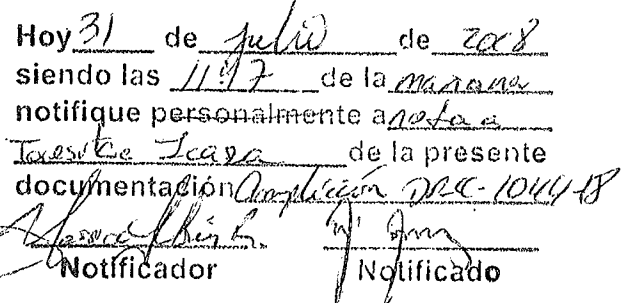 Hoy 31 de julio de 2018
siendo las 11:47 de la mañana
notifique personalmente a nota a
de la presente
documentación Ampliación DRCC-1044-18
Notificador Notificado